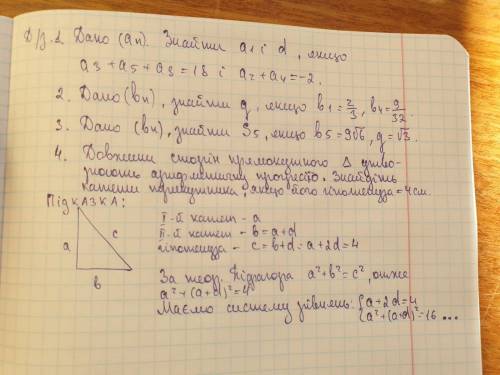 Д/з. 1. Дано (an). Знайти a1 і d, якщо
a3 + a5 + a8 = 18 і a2 + a4 = -2.
2. Дано (bn), знайти q, якщо b1 = 2/3, b4 = 9/32.
3. Дано (bn), знайти S5, якщо b5 = 9√6, q = √3.
4. Довжини сторін прямокутного Δ утво-
рюють арифметичну прогресію. Знайдіть
катети трикутника, якщо його гіпотенуза = 4 см.
ПідКАЗКА:
I-й катет - a
II-й катет - b = a+d
гіпотенуза - c = b+d = a+2d = 4
a
c
b
За теор. Піфагора a²+b²=c², отже
a²+(a+d)²=4²
Маємо систему рівнянь: { a+2d=4
a²+(a+d)²=16 ...